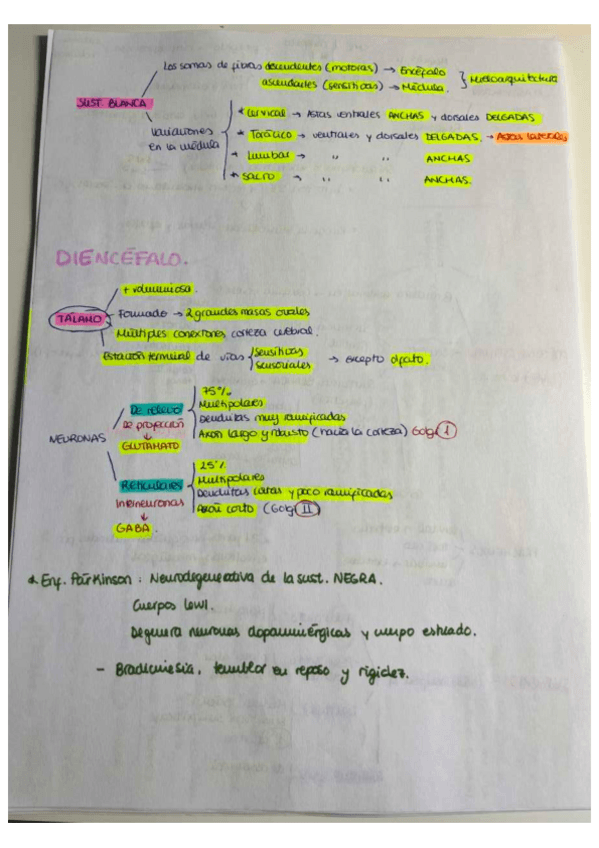 Los somas de fibras descendentes (motoras) → Encéfalo
ascendentes (sensitivas) → Médula. } Mieloarquitectura
SUST. BLANCA
Variaciones en la médula
* Cervical → Astas ventrales ANCHAS y dorsales DELGADAS
* Torácico → ventrales y dorsales DELGADAS. → Astas laterales
* Lumbar → " " ANCHAS
* Sacro → " " ANCHAS.
DIENCÉFALO.
+ voluminosa.
TÁLAMO
Formado → 2 grandes masas ovales
Múltiples conexiones corteza cerebral.
Estación terminal de vías { sensitivas
sensoriales → excepto olfato.
NEURONAS
De relevo
De proyección
↓
GLUTAMATO
75%
Multipolares
Dendritas muy ramificadas
Axón largo y robusto (hacia la corteza) Golgi I
Reticulares
Interneuronas
↓
GABA.
25%
Multipolares
Dendritas cortas y poco ramificadas
Axón corto (Golgi II)
* Enf. Parkinson : Neurodegenerativa de la sust. NEGRA.
Cuerpos Lewi.
Degenera neuronas dopaminérgicas y cuerpo estriado.
- Bradicinesia, temblor en reposo y rigidez.